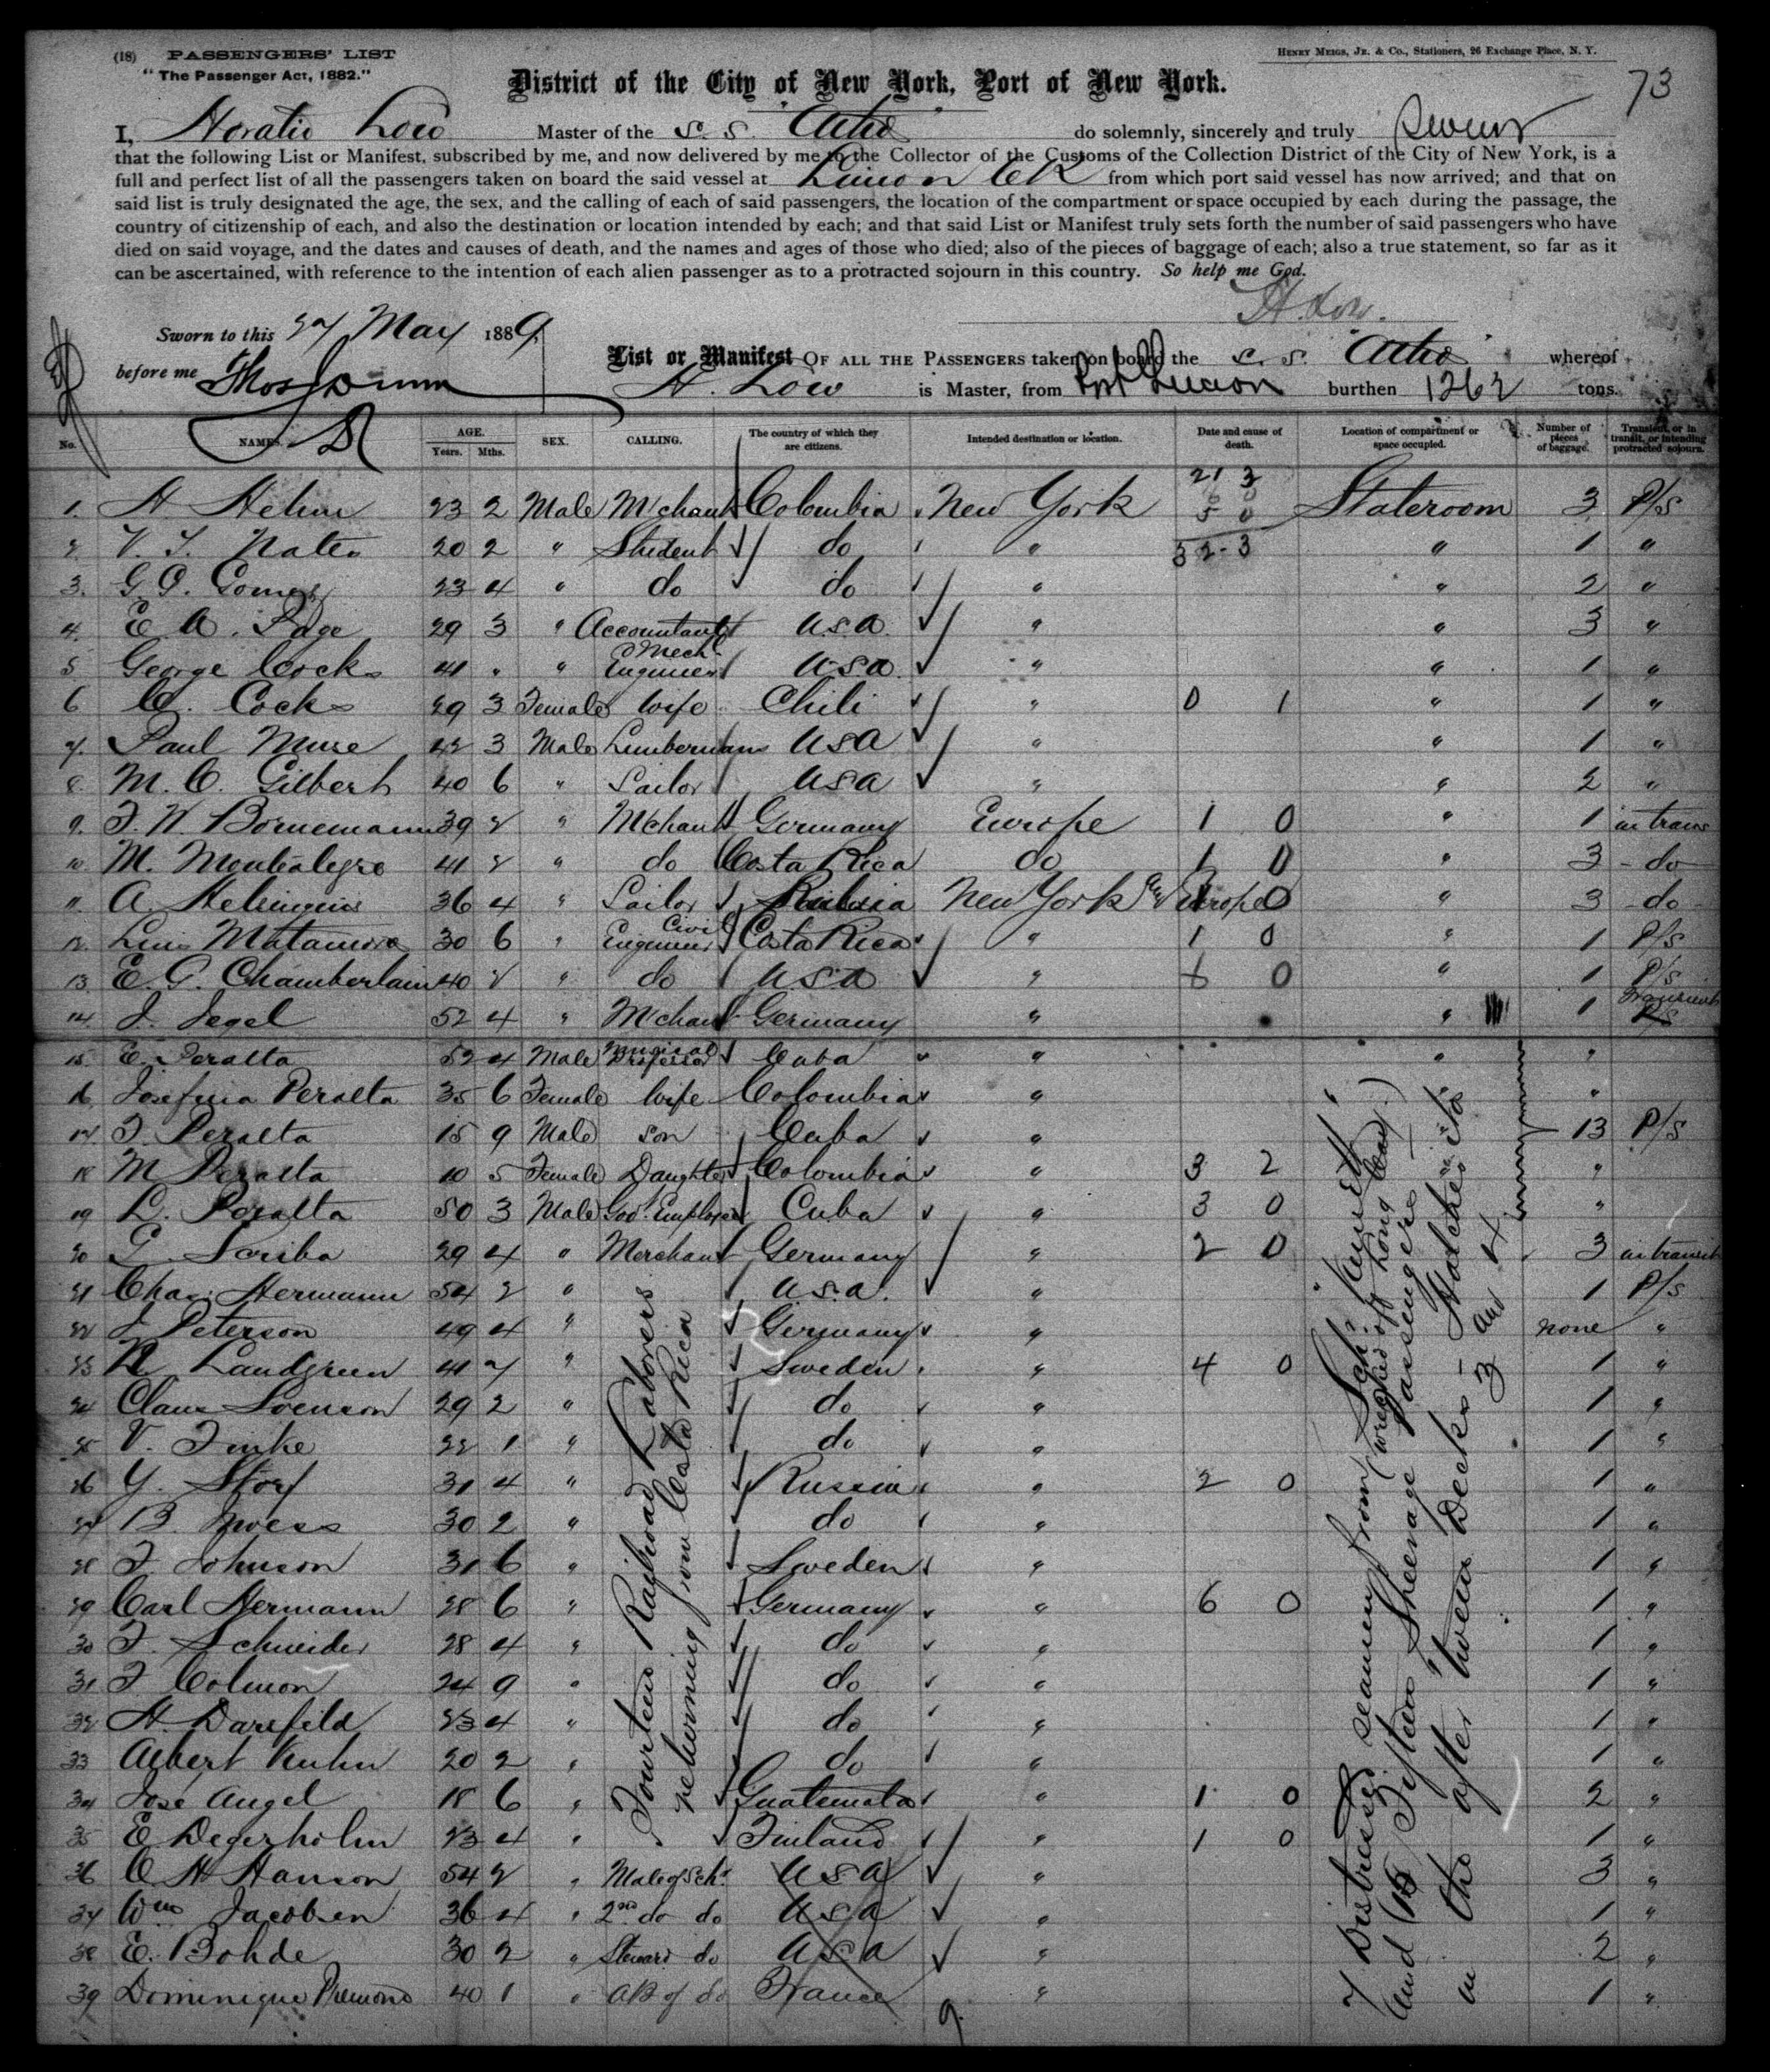 (18) PASSENGERS' LIST
"The Passenger Act, 1882."
HENRY MEIGS, JR. & CO., Stationers, 26 Exchange Place, N. Y.
73
District of the City of New York, Port of New York.
I, Horatio Low Master of the S. S. "Athos" do solemnly, sincerely and truly swear
that the following List or Manifest, subscribed by me, and now delivered by me to the Collector of the Customs of the Collection District of the City of New York, is a
full and perfect list of all the passengers taken on board the said vessel at Limon CR from which port said vessel has now arrived; and that on
said list is truly designated the age, the sex, and the calling of each of said passengers, the location of the compartment or space occupied by each during the passage, the
country of citizenship of each, and also the destination or location intended by each; and that said List or Manifest truly sets forth the number of said passengers who have
died on said voyage, and the dates and causes of death, and the names and ages of those who died; also of the pieces of baggage of each; also a true statement, so far as it
can be ascertained, with reference to the intention of each alien passenger as to a protracted sojourn in this country. So help me God.
H. Low.
Sworn to this 27 May 1889
before me Thos Dunn
List or Manifest OF ALL THE PASSENGERS taken on board the S. S. "Athos" whereof
H. Low is Master, from Port Limon burthen 1262 tons.
No. NAMES. AGE. Years. Mths. SEX. CALLING. The country of which they are citizens. Intended destination or location. Date and cause of death. Location of compartment or space occupied. Number of pieces of baggage. Transient, or in transit, or intending protracted sojourn.
21 3
5 0
32-3
1. H Helm 23 2 Male Mchant Colombia New York Stateroom 3 P/s
2. V. T. Nates 20 2 " Student do " " 1 "
3. G. O. Gomez 23 4 " do do " " 2 "
4. E A. Page 29 3 " Accountant USA " " 3 "
5 George Cocks 41 " " Mech. Engineer USA " " 1 "
6 C. Cocks 29 3 Female wife Chili " 0 1 " 1 "
7. Paul Muse 42 3 Male Lumberman USA " " 1 "
8. M. C. Gilbert 40 6 " Sailor USA " " 2 "
9. F. W. Bornemann 39 2 " Mchant Germany Europe 1 0 " 1 in trans
10. M. Montealegre 41 2 " do Costa Rica do 1 0 " 3 - do
11. A. Helsingius 36 4 " Sailor Russia New York Europe 0 " 3 - do -
12. Luis Matamoro 30 6 " Civil Engineer Costa Rica " 1 0 " 1 P/s
13. E. G. Chamberlain 40 2 " do USA " 6 0 " 1 P/s
14. J. Jegel 52 4 " Mchant Germany " " 1 Transient
15. E. Peralta 52 4 Male Musical Professor Cuba " " "
16. Josefina Peralta 35 6 Female Wife Colombia " "
17. F. Peralta 15 9 Male son Cuba " 13 P/s
18 M Peralta 10 5 Female Daughter Colombia " 3 2 "
19 L. Peralta 50 3 Male Gov. Employee Cuba " 3 0 "
20 G. Scriba 29 4 " Merchant Germany " 2 0 3 in transit
21 Chas. Hermann 54 2 " U.S.A. " 1 P/s
22 J Peterson 49 4 " Germany " none "
23 N. Landgreen 41 7 " Sweden " 4 0 1 "
24 Claus Svenson 29 2 " do " 1 "
25 V. Finke 22 1 " do " 1 "
26 Y. Storf 31 4 " Russia " 2 0 1 "
27 B. 30 2 " do " 1 "
28 F Johnson 31 6 " Sweden " 1 "
29 Carl Hermann 28 6 " Germany " 6 0 1 "
30 F. Schneider 28 4 " do " 1 "
31 F Colmon 24 9 " do " 1 "
32 H. Darsfeld 23 4 " do " 1 "
33 Albert Kuhn 20 2 " do " 1 "
34 José Angel 18 6 " Guatemala " 1 0 2 "
35 E Degerholm 23 4 " Finland " 1 0 1 "
36 C H Hanson 54 2 " Mate of Schr USA " 3 "
37 Wm Jacobsen 36 4 " 2nd do do USA " 1 "
38 E. Bohde 30 2 " Steward do USA " 2 "
39 Dominique 40 1 " AB of do France " 1 "
9
Fourteen Railroad Laborers
returning from Costa Rica
7 Distressed seamen from Schr
(wrecked off Long Cay.)
and Fifteen Steerage passengers
in the after 'tween Decks - Hatches Nos
3 and 4